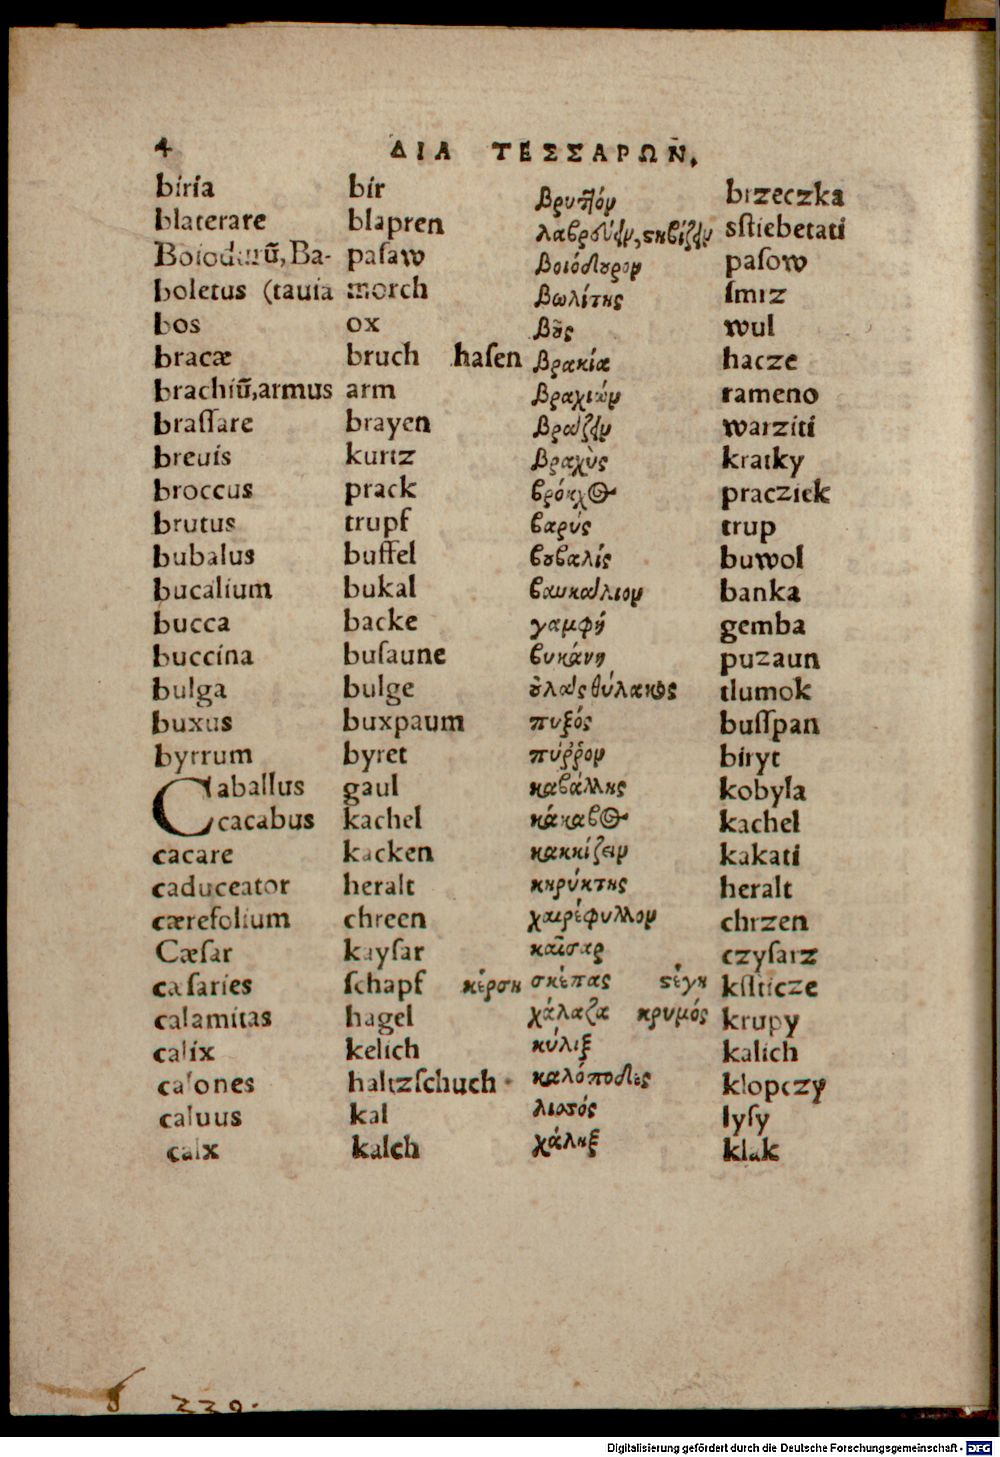 4 ΔΙΑ ΤΕΣΣΑΡΩΝ.
biria bir βρυτὸν brzeczka
blaterare blapren λαβρεύειν, σκβίζειν sstiebetati
Boiodurũ, Ba- pasaw βοιόδουρον pasow
boletus (tauia morch βωλίτης smrz
bos ox βοῦς wul
bracæ bruch hasen βρακία hacze
brachiũ, armus arm βραχιών rameno
brassare brayen βράζειν warziti
breuis kurtz βραχὺς kratky
broccus prack βρόκχος pracziek
brutus trupf βαρύς trup
bubalus buffel βουβαλίς buwol
bucalium bukal βαυκάλιον banka
bucca backe γαμφή gemba
buccina busaune βυκάνη puzaun
bulga bulge ὀλάις θύλακος tlumok
buxus buxpaum πυξός busspan
byrrum byret πύῤῥον biryt
Caballus gaul καβάλλης kobyla
cacabus kachel κάκαβος kachel
cacare kacken κακκίζειν kakati
caduceator heralt κηρύκτης heralt
cærefolium chreen χαιρέφυλλον chrzen
Cæsar kaysar καῖσαρ czysarz
casaries schapf κέρση σκέπας στέγη kstticze
calamitas hagel χάλαζα κρυμός krupy
calix kelich κύλιξ kalich
calones haltzschuch καλόποδες klopczy
caluus kal λισσός lysy
calx kalch χάληξ klak
8 220.
Digitalisierung gefördert durch die Deutsche Forschungsgemeinschaft - DFG